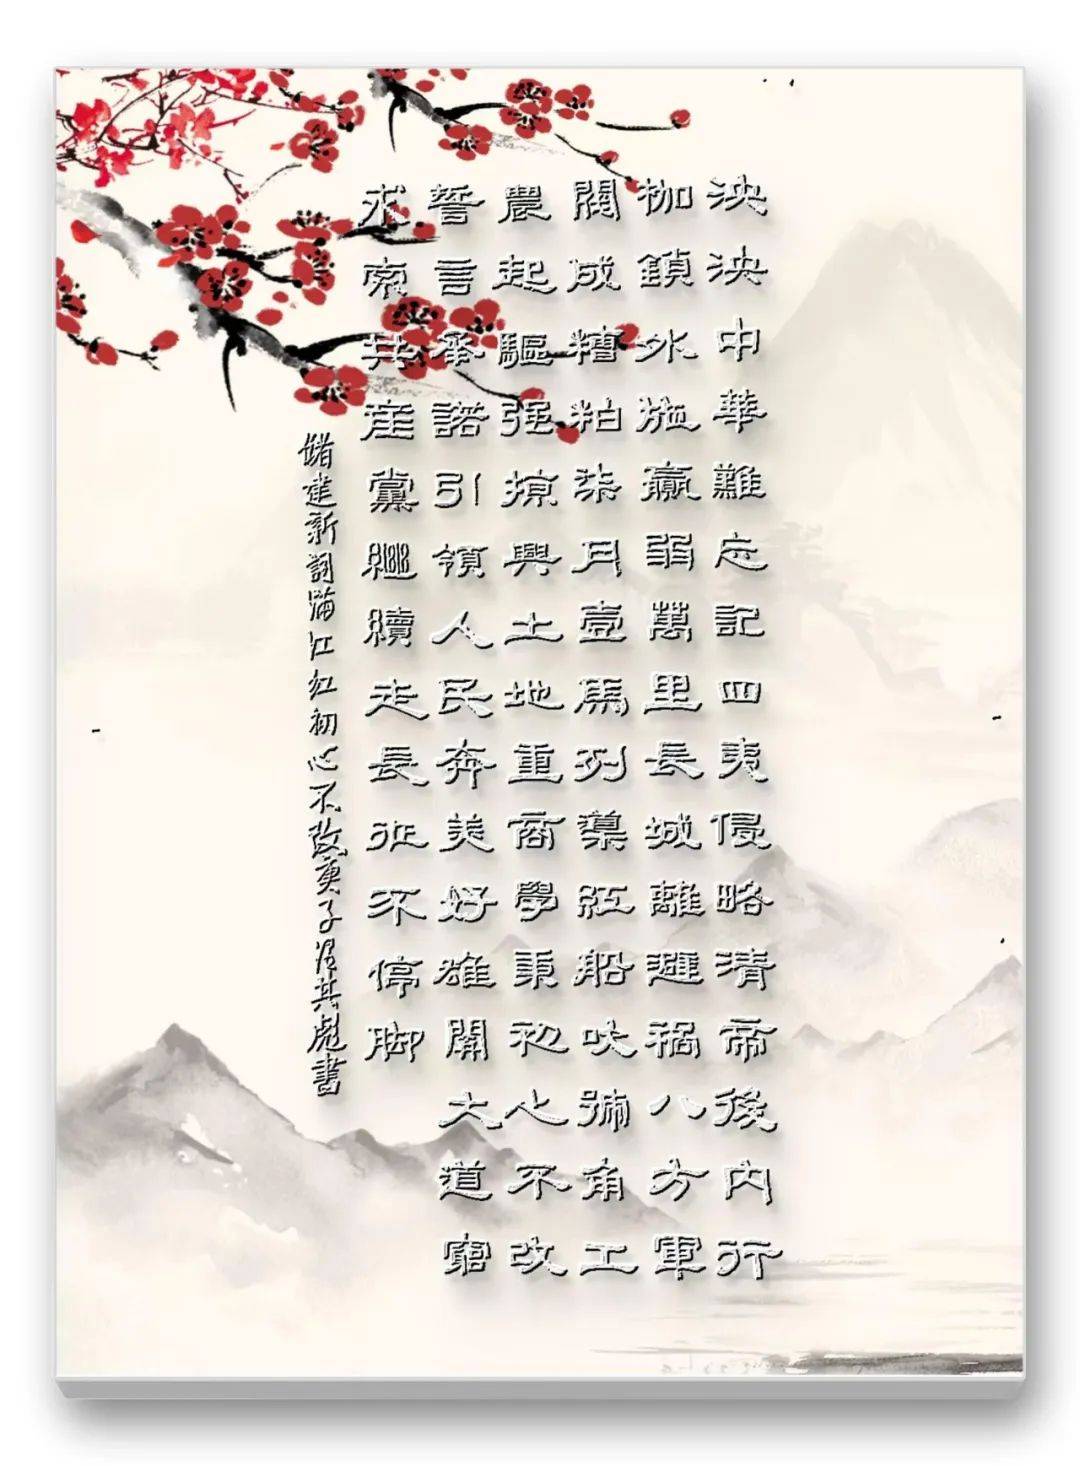 泱泱中華難忘記四夷侵略清帝後内行
枷鎖外施羸弱萬里長城離避禍八方軍
閥成糟粕柒月壹馬列藥紅船吹號角工
農起驅强掠興土地重商學秉初心不改
誓言承諾引領人民奔美好雄開大道寬
求索共產黨繼續走長征不停脚
儲建新詞滿江紅初心不改庚子其彪書